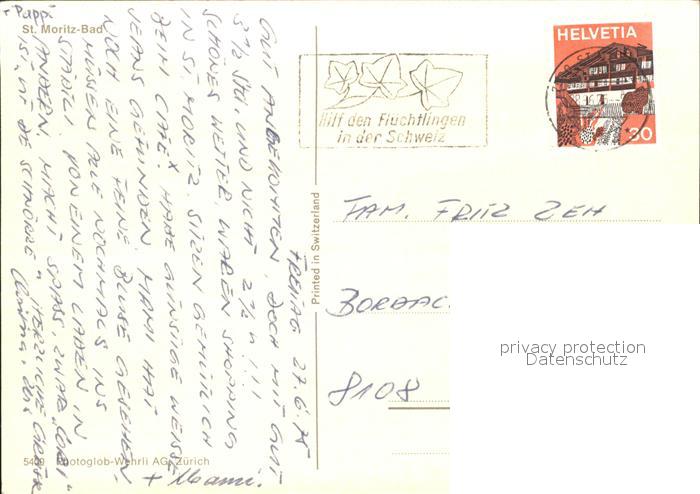 St. Moritz-Bad
HELVETIA
30
Hilf den Flüchtlingen
in der Schweiz
Printed in Switzerland
FREITAG 27.6.75
GUT ANGEKOMMEN, DOCH MIT GUT
3½ STD. UND NICHT 2½ !!!
SCHÖNES WETTER, WAREN SHOPPING
IN ST. MORITZ, SITZEN GEMÜTLICH
BEIM CAFE. HABE GÜNSTIGE WEISSE
JEANS GEFUNDEN MAMI HAT
NOCH EINE FEINE BLUSE GESEHEN,
MÜSSEN ALLE NOCHMALS INS
STÄDTL VON EINEM LADEN IN
ANDERN. MACHT SPASS, ZWAR "CORI"
IST, IST DE SCHNÖRZLE" HERZLICHE GRÜSSE
+ Mami.
+ Pappi
FAM. FRITZ ZEH
8108
privacy protection
Datenschutz
Photoglob-Wehrli AG, Zürich